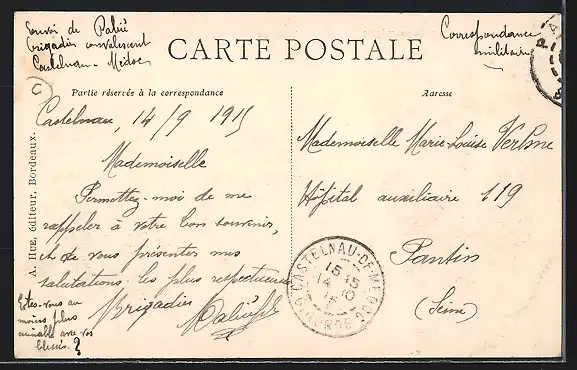 Envoi de
brigadier convalescent
Castelnau-Médoc
CARTE POSTALE
Correspondance
militaire
Partie réservée à la correspondance
Adresse
Castelnau, 14/9 1915
Mademoiselle
Permettez-moi de me
rappeler à votre bon souvenir,
et de vous présenter mes
salutations les plus respectueuses
Brigadier
Êtes-vous au
moins plus
aimable avec vos
blessés ?
Mademoiselle Marie-Louise
Hôpital auxiliaire 119
Pantin
(Seine)
CASTELNAU-DE-MEDOC
GIRONDE
A. HUE, éditeur, Bordeaux.